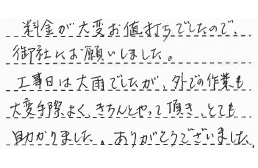 料金が大変お値打ちでしたので、
御社にお願いしました。
工事日は大雨でしたが、外での作業も
大変手際よく、きちんとやって頂き、とても
助かりました。ありがとうございました。